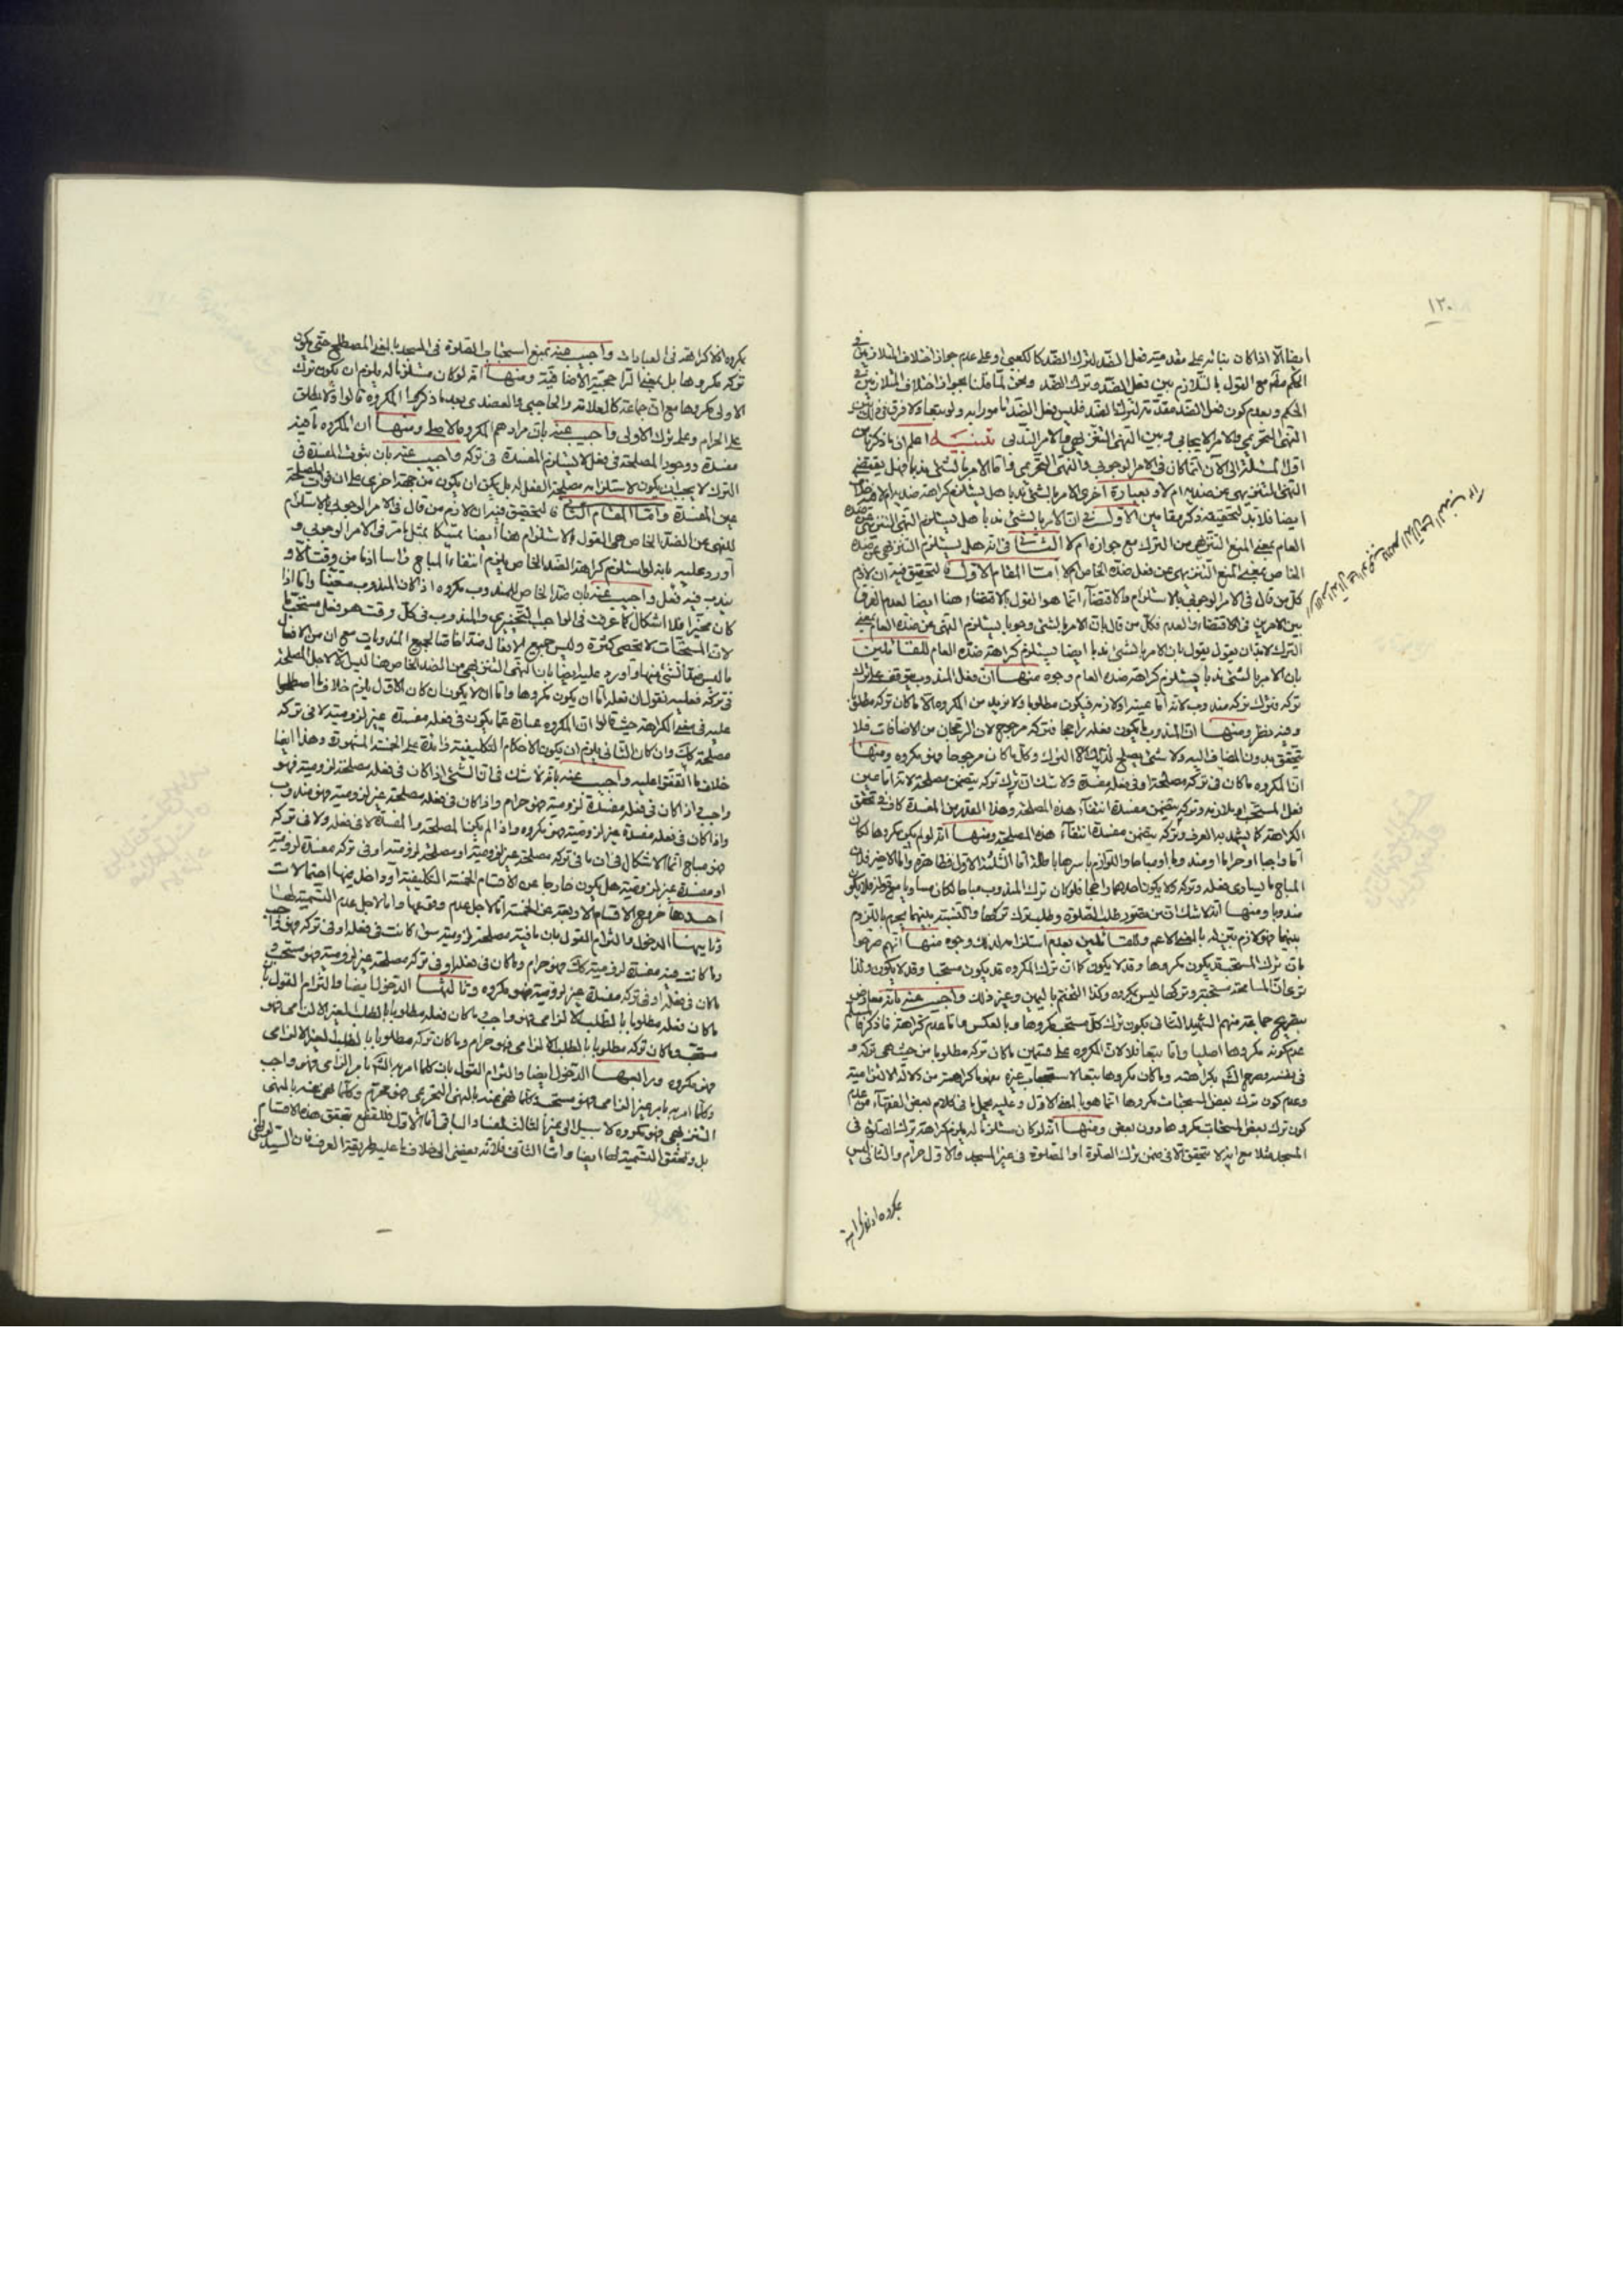 ١٢٠
ايضا الا اذا كان بنائه على مقدمية فعل الضد لترك الضد كالكعبي او على عدم جواز اختلاف المتلازمين في
الحكم مع القول بالتلازم بين فعل الضد وترك الضد ونحن لما قلنا بجواز اختلاف المتلازمين في
الحكم وبعدم كون فعل الضد مقدمة لترك الضد فليس فعل الضد مأمورا به ولو تبعا ولا فرق في ذلك بين
النهي التحريمي والامر الايجابي وبين النهي التنزيهي والامر الندبي تنبيه اعلم ان ما ذكرنا من
اول المسئلة الى الآن انما كان في الامر الوجوبي والنهي التحريمي واما الامر بالشئ ندبا فهل يقتضي
النهي التنزيهي عن ضده ام لا وبعبارة اخرى الامر بالشئ ندبا هل يستلزم كراهة ضده ام لا
ايضا فلا بد لتحقيقه ذكر مقامين الاول في ان الامر بالشئ ندبا هل يستلزم النهي التنزيهي عن ضده
العام بمعنى المنع التنزيهي من الترك مع جوازه ام لا الثاني في انه هل يستلزم التنزيهي عن ضده
الخاص بمعنى المنع التنزيهي عن فعل ضده الخاص ام لا اما المقام الاول فالتحقيق فيه ان لازم
كل من قال في الامر الوجوبي بالاستلزام والاقتضاء انما هو القول بالاقتضاء هنا ايضا لعدم الفرق
بين الامرين في الاقتضاء والعدم فكل من قال بان الامر بالشئ وجوبا يستلزم النهي عن ضده العام بمعنى
الترك لا بد ان يقول بان الامر بالشئ ندبا ايضا يستلزم كراهة ضده العام للقائلين
بان الامر بالشئ ندبا يستلزم كراهة ضده العام وجوه منها ان فعل المندوب يتوقف على ترك
تركه فترك تركه مندوب لانه اما عينه او لازمه فيكون مطلوبا ولا نريد من المكروه الا ما كان تركه مطلوبا
وفيه نظر ومنها ان المندوب ما يكون فعله راجحا فتركه مرجوح لان الرجحان من الاضافات فلا
يتحقق بدون المضاف اليه ولا شئ يصلح لذلك الا الترك وكل ما كان مرجوحا فهو مكروه ومنها
ان المكروه ما كان في تركه مصلحة او في فعله مفسدة ولا شك ان ترك تركه يتضمن مصلحة لانه اما عين
فعل المستحب او ملازمه وتركه يتضمن مفسدة انتفاء هذه المصلحة وهذا القدر من المفسدة كاف في تحقق
الكراهة كما يشهد به العرف وتركه يتضمن مفسدة انتفاء هذه المصلحة ومنها انه لو لم يكن مكروها لكان
اما واجبا او حراما او مندوبا او مباحا واللوازم باسرها باطلة اما الثلثة الاول فظاهرة واما الاخير فلان
المباح ما يساوى فعله وتركه ولا يكون احدهما راجحا فلو كان ترك المندوب مباحا لكان مساويا مع فعله فلا يكون
مندوبا ومنها انه لا شك ان من تصور طلب الصلوة وطلب ترك تركها والنسبة بينهما يجزم باللزوم
بينهما فهو لازم بين له بالمعنى الاعم وللقائلين بعدم استلزامه لذلك وجوه منها انهم صرحوا
بان ترك المستحب قد يكون مكروها وقد لا يكون كما ان ترك المكروه قد يكون مستحبا وقد لا يكون ولذا
المسامحة مستحبة وتركها ليس بمكروه وكذا التختم باليمين وغير ذلك واجيب عنه بانه معارض
بتصريح جماعة منهم الشهيد الثاني بكون ترك كل مستحب مكروها وبالعكس واما عدم كراهة ما ذكر
عدم كونه مكروها اصليا واما تبعا فلا لان المكروه على قسمين ما كان تركه مطلوبا من حيث هي تركه
في نفسه وصرح الشرع بكراهته وما كان مكروها تبعا لاستحباب غيره بفهم كراهته من دلالة الالتزامية
وعدم كون ترك بعض المستحبات مكروها انما هو بالمعنى الاول وعليه يحمل ما في كلام بعض الفقهاء من عدم
كون ترك بعض المستحبات مكروها دون بعض ومنها انه لو كان مستلزما له يلزم كراهة ترك الصلوة في
المسجد مثلا مع انه لا يتحقق الا في ضمن ترك الصلوة او الصلوة في غير المسجد فالاول حرام والثاني ليس
بمكروه اذ لا كراهة
بمكروه اذ لا كراهة في العبادات واجيب عنه بمنع استحباب الصلوة في المسجد بالمعنى المصطلح حتى يكون
تركه مكروها بل بمعنى الراجحية الاضافية ومنها انه لو كان مستلزما له يلزم ان يكون ترك
الاولى مكروها مع ان جماعة كالعلامة والحاجبي والعضدي بعد ما ذكروا المكروه قالوا وقد يطلق
على الحرام وعلى ترك الاولى واجيب عنه بان مرادهم المكروه الاصلي ومنها ان المكروه ما فيه
مفسدة ووجود المصلحة في فعل لا يستلزم المفسدة في تركه واجيب عنه بان ثبوت المفسدة في
الترك لا يجب ان يكون لاستلزامه مصلحة الفعل له بل يمكن ان يكون من جهة اخرى على ان فوات المصلحة
عين المفسدة واما المقام الثاني فالتحقيق فيه ان لازم من قال في الامر الوجوبي بالاستلزام
للنهي عن الضد الخاص هي القول بالاستلزام هنا ايضا متمسكا بمثل ما مر في الامر الوجوبي و
اورد عليه بانه لو استلزم كراهة الضد الخاص يلزم انتفاء المباح رأسا اذ ما من وقت الا و
يندب فيه فعل واجيب عنه بان ضد الخاص للمندوب مكروه اذا كان المندوب معينا واما اذا
كان مخيرا فلا اشكال كما عرفت في الواجب التخييري والمندوب في كل وقت هو فعل مستحب ما
لان المستحبات لا تحصى كثرة وليس جميع الافعال ضدا خاصا لجميع المندوبات مع ان من الافعال
ما ليس ضدا لشئ منها واورد عليه ايضا بان النهي التنزيهي عن الضد الخاص هنا ليس الا لاجل المصلحة
في تركه فعليه نقول ان فعله اما ان يكون مكروها واما ان لا يكون ان كان الاول يلزم خلاف ما اصطلحوا
عليه في معنى الكراهة حيث قالوا ان المكروه عبارة عما يكون في فعله مفسدة غير لزومية لا في تركه
مصلحة كك وان كان الثاني يلزم ان يكون الاحكام التكليفية زائدة على الخمسة المشهورة وهذا ايضا
خلاف ما اتفقوا عليه واجيب عنه بانه لا شك في ان الشئ اذا كان في فعله مصلحة لزومية فهو
واجب واذا كان في فعله مفسدة لزومية فهو حرام واذا كان في فعله مصلحة غير لزومية فهو مندوب
واذا كان في فعله مفسدة غير لزومية فهو مكروه واذا لم يكن المصلحة والمفسدة لا في فعله ولا في تركه
فهو مباح انما الاشكال في ان ما في تركه مصلحة غير لزومية او مصلحة لزومية او في تركه مفسدة لزومية
او مفسدة غير لزومية هل يكون خارجا عن الاقسام الخمسة التكليفية او داخل فيها احتمالات
احدها خروج الاقسام الاربعة عن الخمسة اما لاجل عدم وقوعها واما لاجل عدم التسمية لها
وثانيها الدخول والتزام القول بان ما فيه مصلحة لزومية سواء كانت في فعله او في تركه فهو واجب
وما كانت فيه مفسدة لزومية كك فهو حرام وما كان في فعله او في تركه مصلحة غير لزومية فهو مستحب و
ما كان في فعله او في تركه مفسدة غير لزومية فهو مكروه وثالثها الدخول ايضا والتزام القول بان
ما كان فعله مطلوبا بالطلب الالزامي فهو واجب وما كان فعله مطلوبا بالطلب الغير الالزامي فهو
مستحب وما كان تركه مطلوبا بالطلب الالزامي فهو حرام وما كان تركه مطلوبا بالطلب الغير الالزامي
فهو مكروه ورابعها الدخول ايضا والتزام القول بان كلما امر به الشرع بامر الزامي فهو واجب
وكلما امر به بامر غير الزامي فهو مستحب وكلما نهى عنه بالنهي التحريمي فهو محرم وكلما نهى عنه بالنهي
التنزيهي فهو مكروه لا سبيل الى غير الثالث لفساد الباقي اما الاول فللقطع بتحقق هذه الاقسام
بل وتحقق التسمية لها ايضا واما الثاني فلانه يفضي الى خلاف ما عليه طريقة العرف فان السيد